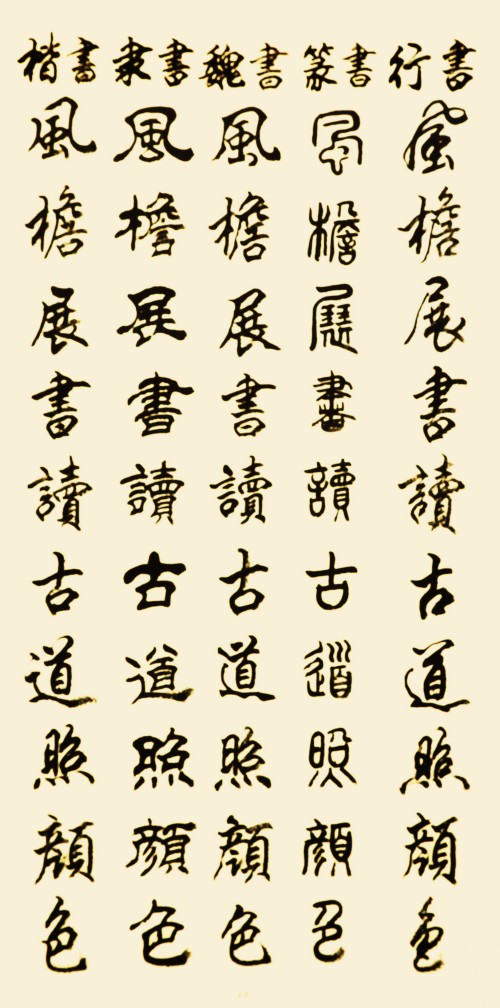 楷書 隶書 魏書 篆書 行書
風檐展書讀古道照顏色
風檐展書讀古道照顏色
風檐展書讀古道照顏色
風檐展書讀古道照顏色
風檐展書讀古道照顏色